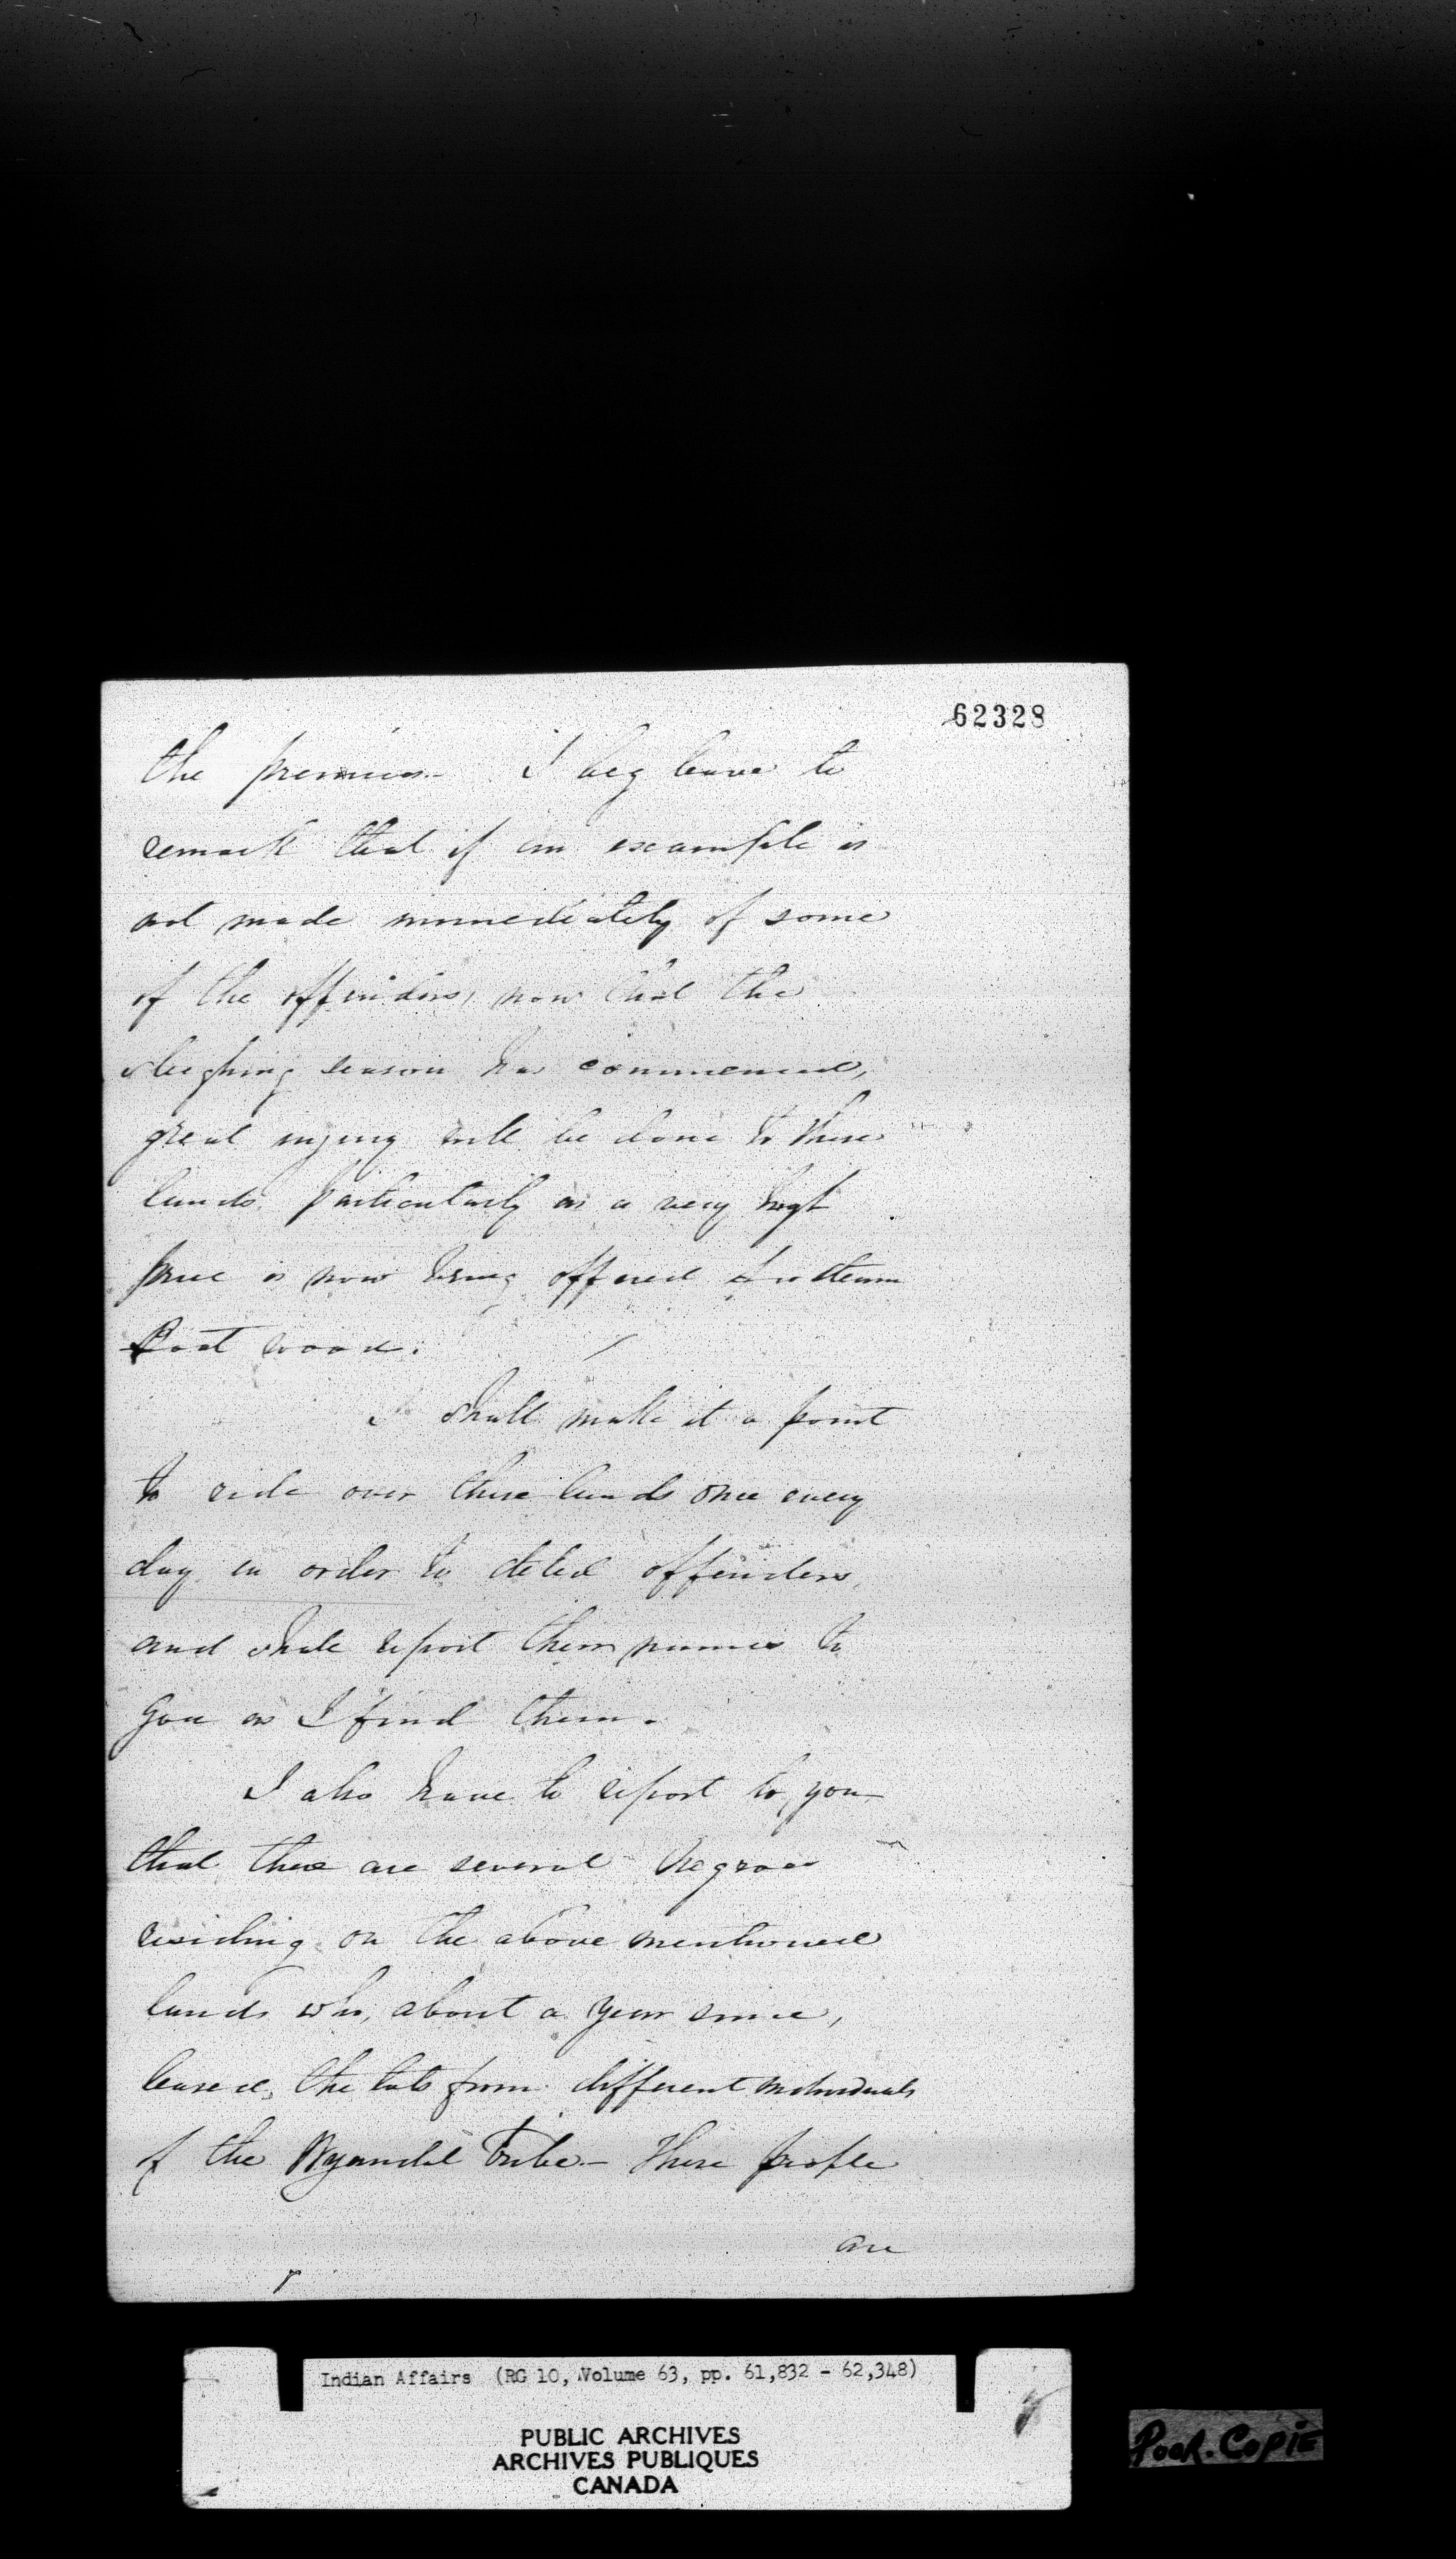 62328
the premises. I beg leave to
remark that if an example is
not made immediately of some
of the offenders, now that the
sleighing season has commenced,
great injury will be done to these
lands particularly as a very high
price is now being offered for steam
Boat wood.
I shall make it a point
to ride over these lands once every
day in order to detect offenders,
and shall report them names to
you as I find them.
I also have to report to you
that there are several Negroes
residing on the above mentioned
lands who, about a year since,
leased, the lots from different individuals
of the Wyandot Tribe - These people
are
Indian Affairs (RG 10, Volume 63, pp. 61,832 - 62,348)
PUBLIC ARCHIVES
ARCHIVES PUBLIQUES
CANADA
Poor. Copie